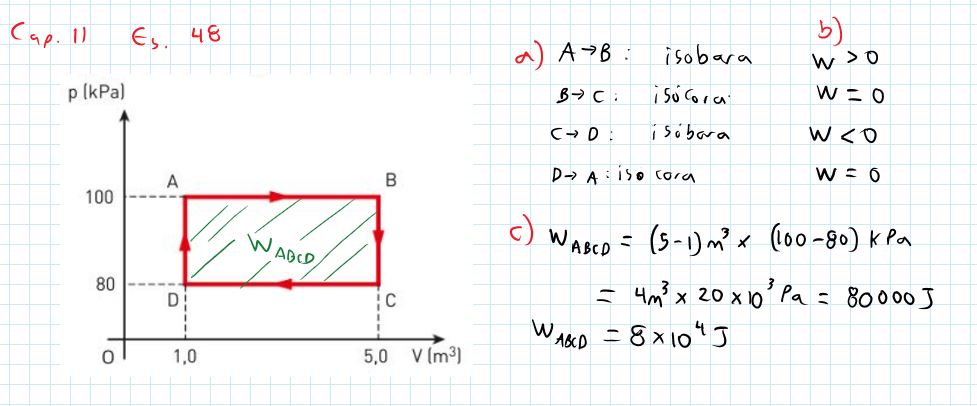 Cap. 11 Es. 48
p (kPa)
A B
100
W ABCD
80
D C
O 1,0 5,0 V (m³)
a) b)
A→B : isobara W > 0
B→C : isócora W = 0
C→D : isóbara W < 0
D→A : isocora W = 0
c) W ABCD = (5-1) m³ × (100-80) kPa
= 4m³ × 20 × 10³ Pa = 80000 J
W ABCD = 8 × 10⁴ J